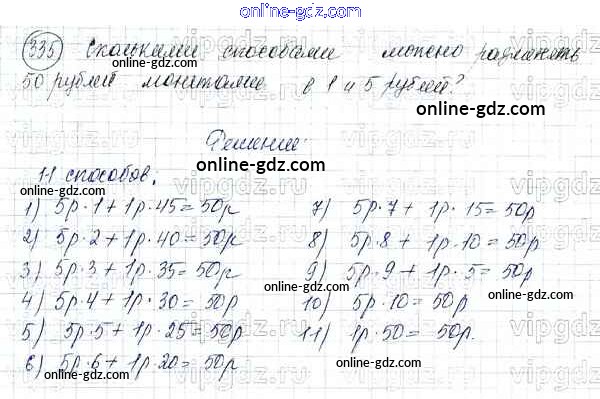 online-gdz.com
335 Сколькими способами можно разменять
50 рублей монетами в 1 и 5 рублей?
online-gdz.com
online-gdz.com
Решение:
online-gdz.com
11 способов:
online-gdz.com
1) 5р·1 + 1р·45 = 50р
2) 5р·2 + 1р·40 = 50р
3) 5р·3 + 1р·35 = 50р
4) 5р·4 + 1р·30 = 50р
5) 5р·5 + 1р·25 = 50р
6) 5р·6 + 1р·20 = 50р
7) 5р·7 + 1р·15 = 50р
8) 5р·8 + 1р·10 = 50р
9) 5р·9 + 1р·5 = 50р
10) 5р·10 = 50р
11) 1р·50 = 50р.
online-gdz.com
online-gdz.com
online-gdz.com
online-gdz.com
online-gdz.com
online-gdz.com
online-gdz.com
online-gdz.com